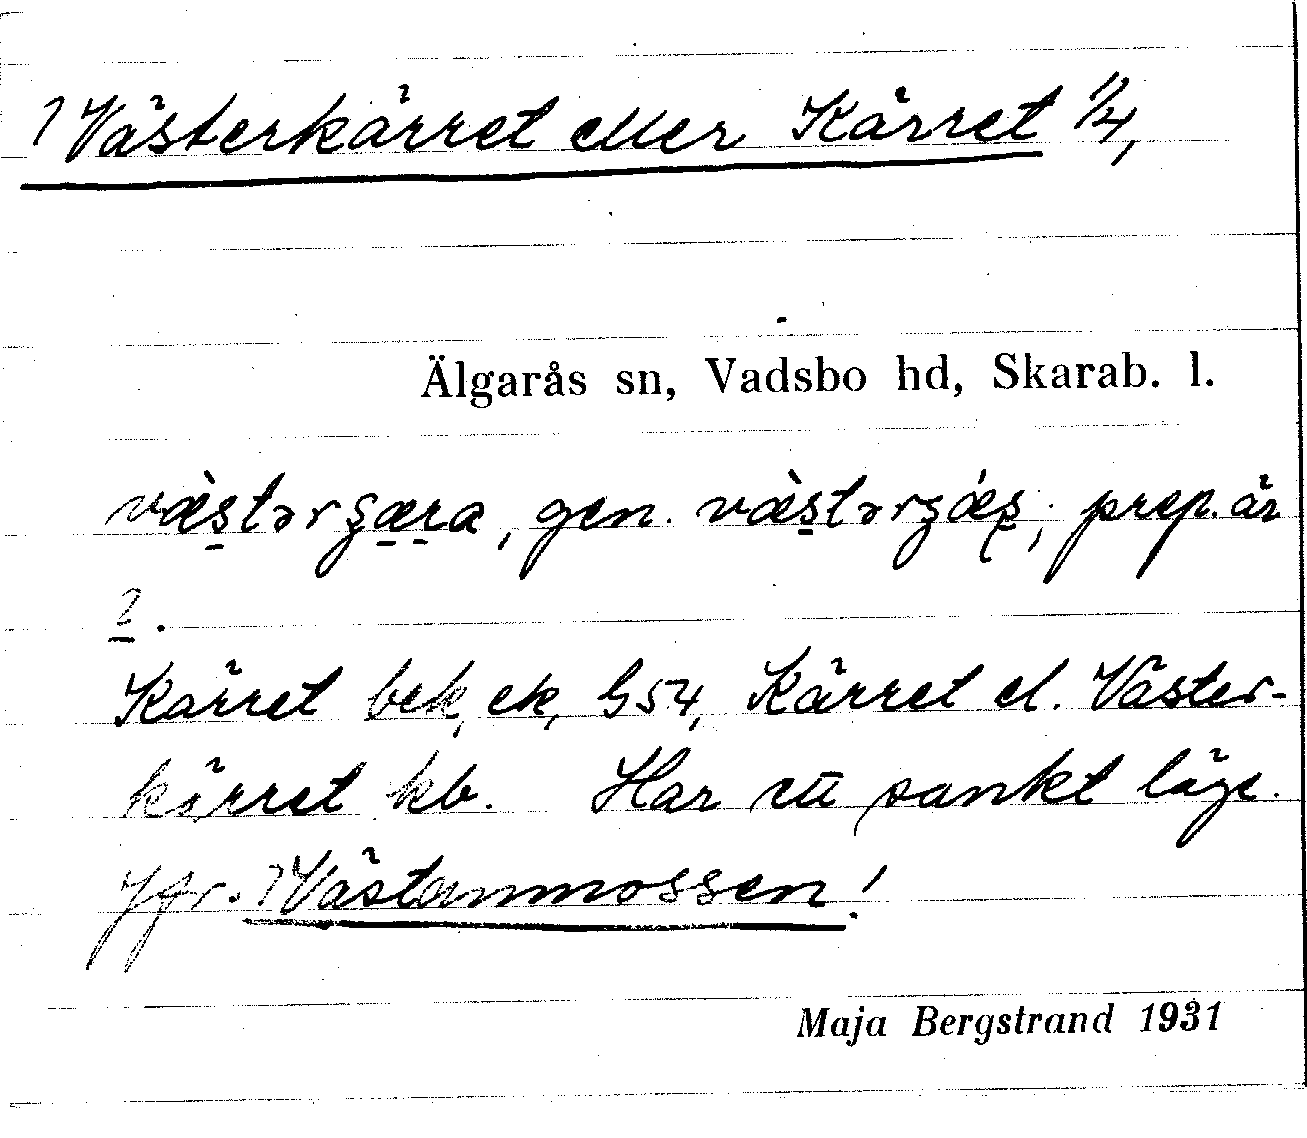 1 Västerkärret eller Kärret 1/4,
Älgarås sn, Vadsbo hd, Skarab. l.
væ̀stərʒæra, gen. væ̀stərʒæs; prep. är
2.
Kärret bek, ek, G54, Kärret el. Väster-
kärret kb. Har ett sankt läge.
Jfr. 1 Västanmossen!
Maja Bergstrand 1931